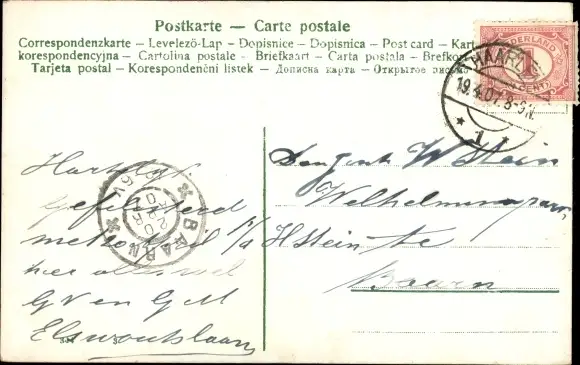 Postkarte — Carte postale
Correspondenzkarte — Levelező-Lap — Dopisnice — Dopisnica — Post card — Kart
korespondencyjna — Cartolina postale — Briefkaart — Carta postala — Brefkort
Tarjeta postal — Korespondenční lístek — Дописна карта — Открытое письмо
NEDERLAND
1
CENT
HAARL
19.4.07. 8-9N.
* 1 *
BAARN
20
APR
07
6V
Hartelijk
gefeliciteerd
met
hier alles wel
GV en GM
W Stein
Wilhelminapark
p/a H Stein te
Baarn